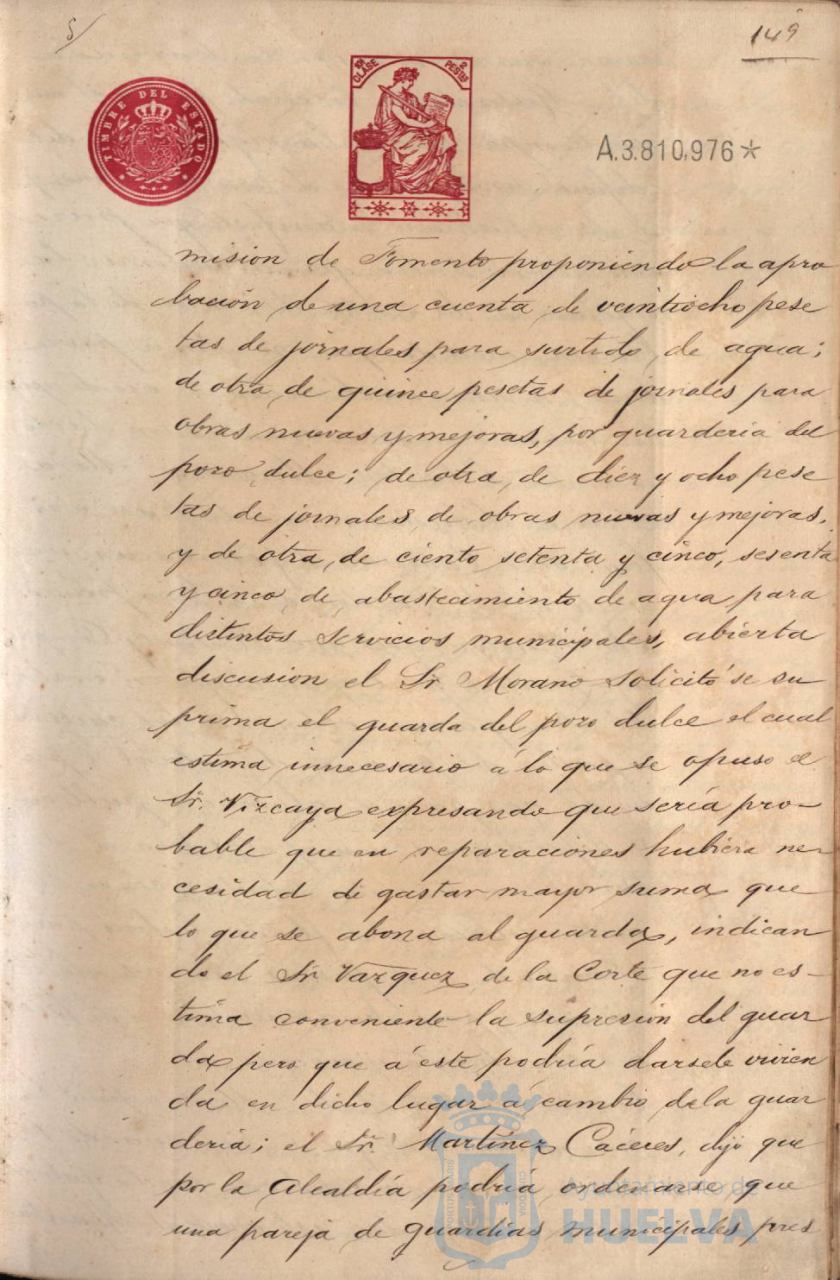 5/
149
TIMBRE DEL ESTADO
8ª CLASE 2 PESTAS
A.3.810.976*
mision de Fomento proponiendo la apro
bación de una cuenta de veintiocho pese
tas de jornales para surtido de agua;
de otra de quince pesetas de jornales para
obras nuevas y mejoras, por guarderia del
pozo dulce; de otra, de diez y ocho pese
tas de jornales de obras nuevas y mejoras,
y de otra, de ciento setenta y cinco, sesenta
y cinco, de abastecimiento de agua para
distintos servicios municipales, abierta
discusion el Sr. Morano solicitó se su
prima el guarda del pozo dulce el cual
estima innecesario á lo que se opuso el
Sr. Vizcaya expresando que sería pro-
bable que en reparaciones hubiera ne-
cesidad de gastar mayor suma que
lo que se abona al guarda, indican
do el Sr. Vazquez de la Corte que no es-
tima conveniente la supresion del guar
da pero que á este podría darsele vivien
da en dicho lugar á cambio de la guar
deria; el Sr. Martínez Cáceres, dijo que
por la Alcaldía podría ordenarse que
una pareja de guardias municipales pres
Ayuntamiento de
HUELVA